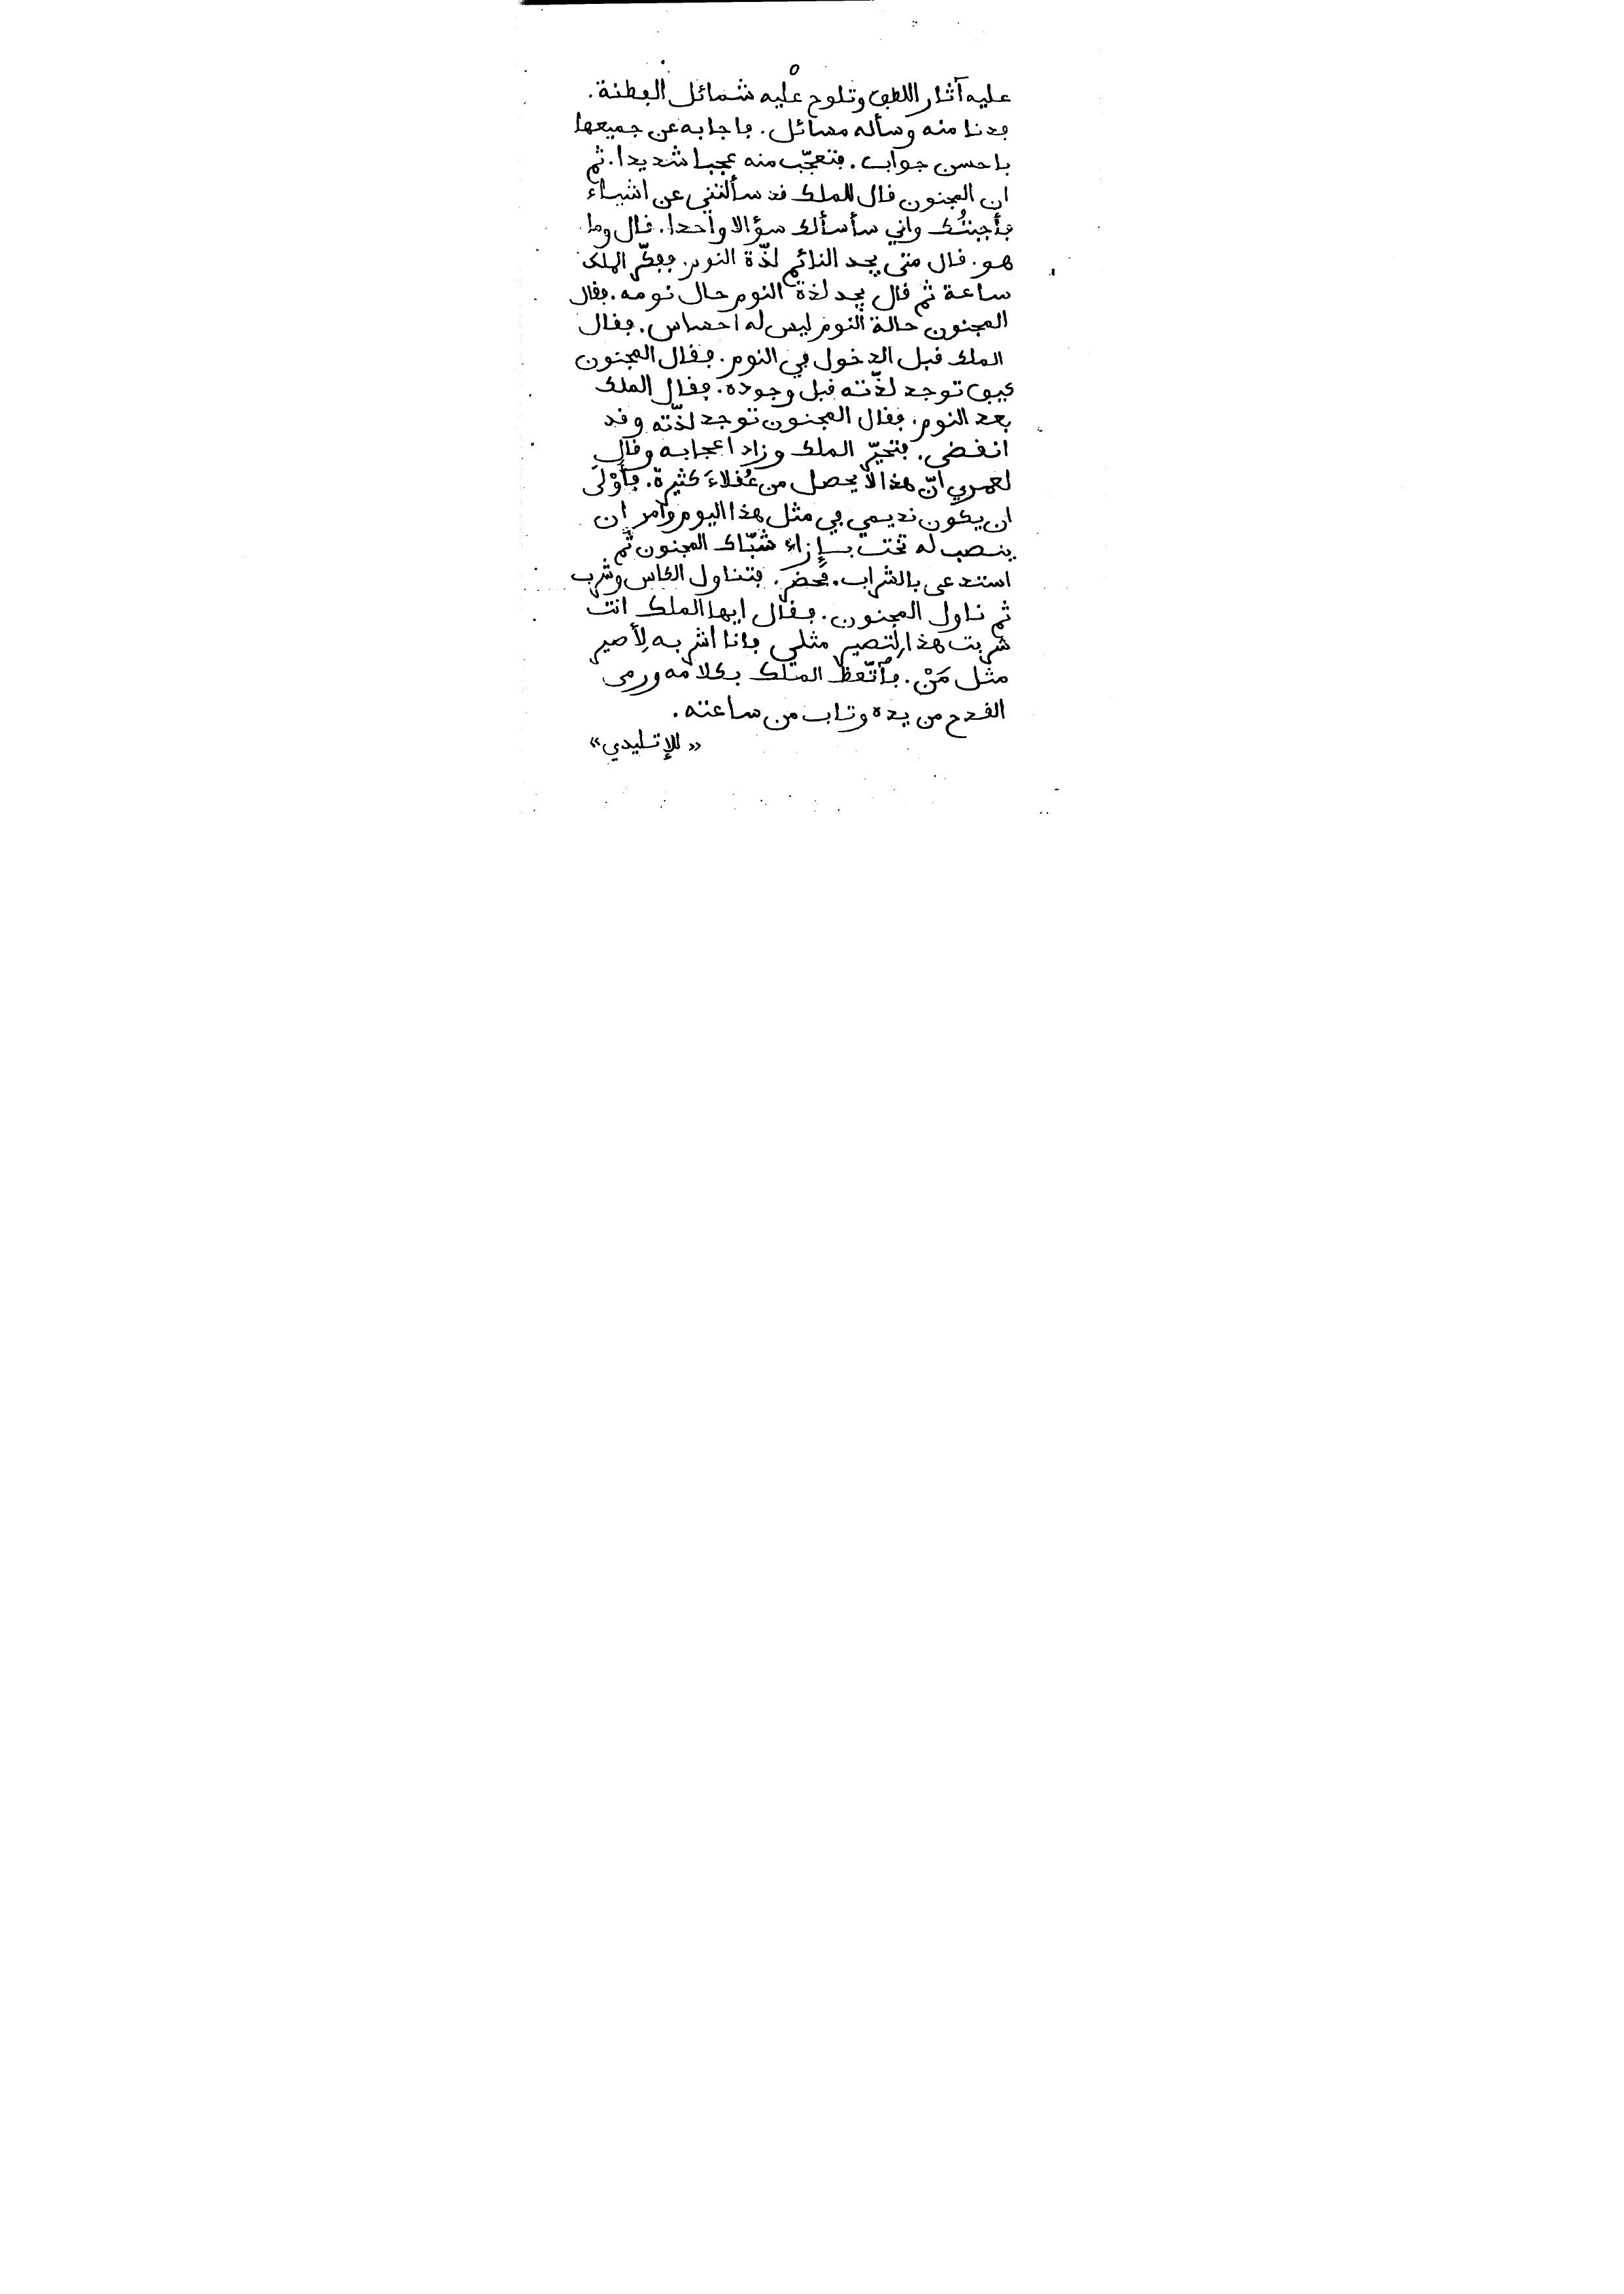 ٥
عليه آثار اللطف وتلوح عليه شمائل الفطنة.
فدنا منه وسأله مسائل. فاجابه عن جميعها
باحسن جواب. فتعجّب منه عجبا شديدا. ثم
ان المجنون قال للملك قد سألتني عن اشياء
فأجبتُك واني سأسألك سؤالا واحدا. قال وما
هو. قال متى يجد النائم لذّة النوم. ففكّر الملك
ساعة ثم قال يجد لذة النوم حال نومه. فقال
المجنون حالة النوم ليس له احساس. فقال
الملك قبل الدخول في النوم. فقال المجنون
كيف توجد لذّته قبل وجوده. فقال الملك
بعد النوم. فقال المجنون توجد لذّته وقد
انقضى. فتحيّر الملك وزاد اعجابه وقال
لعمري انّ هذا لا يحصل من عُقلاءَ كثيرة. فأَوْلَى
ان يكون نديمي في مثل هذا اليوم وامر ان
ينصب له تخت بإزاء شبّاك المجنون ثم
استدعى بالشراب. فحضر. فتناول الكاس وشرب
ثم ناول المجنون. فقال ايها الملك انت
شربت هذا لِتصير مثلي فانا اشربه لِأصير
مثل مَنْ. فٱتّعظ الملك بكلامه ورمى
القدح من يده وتاب من ساعته.
«للإتليدي»